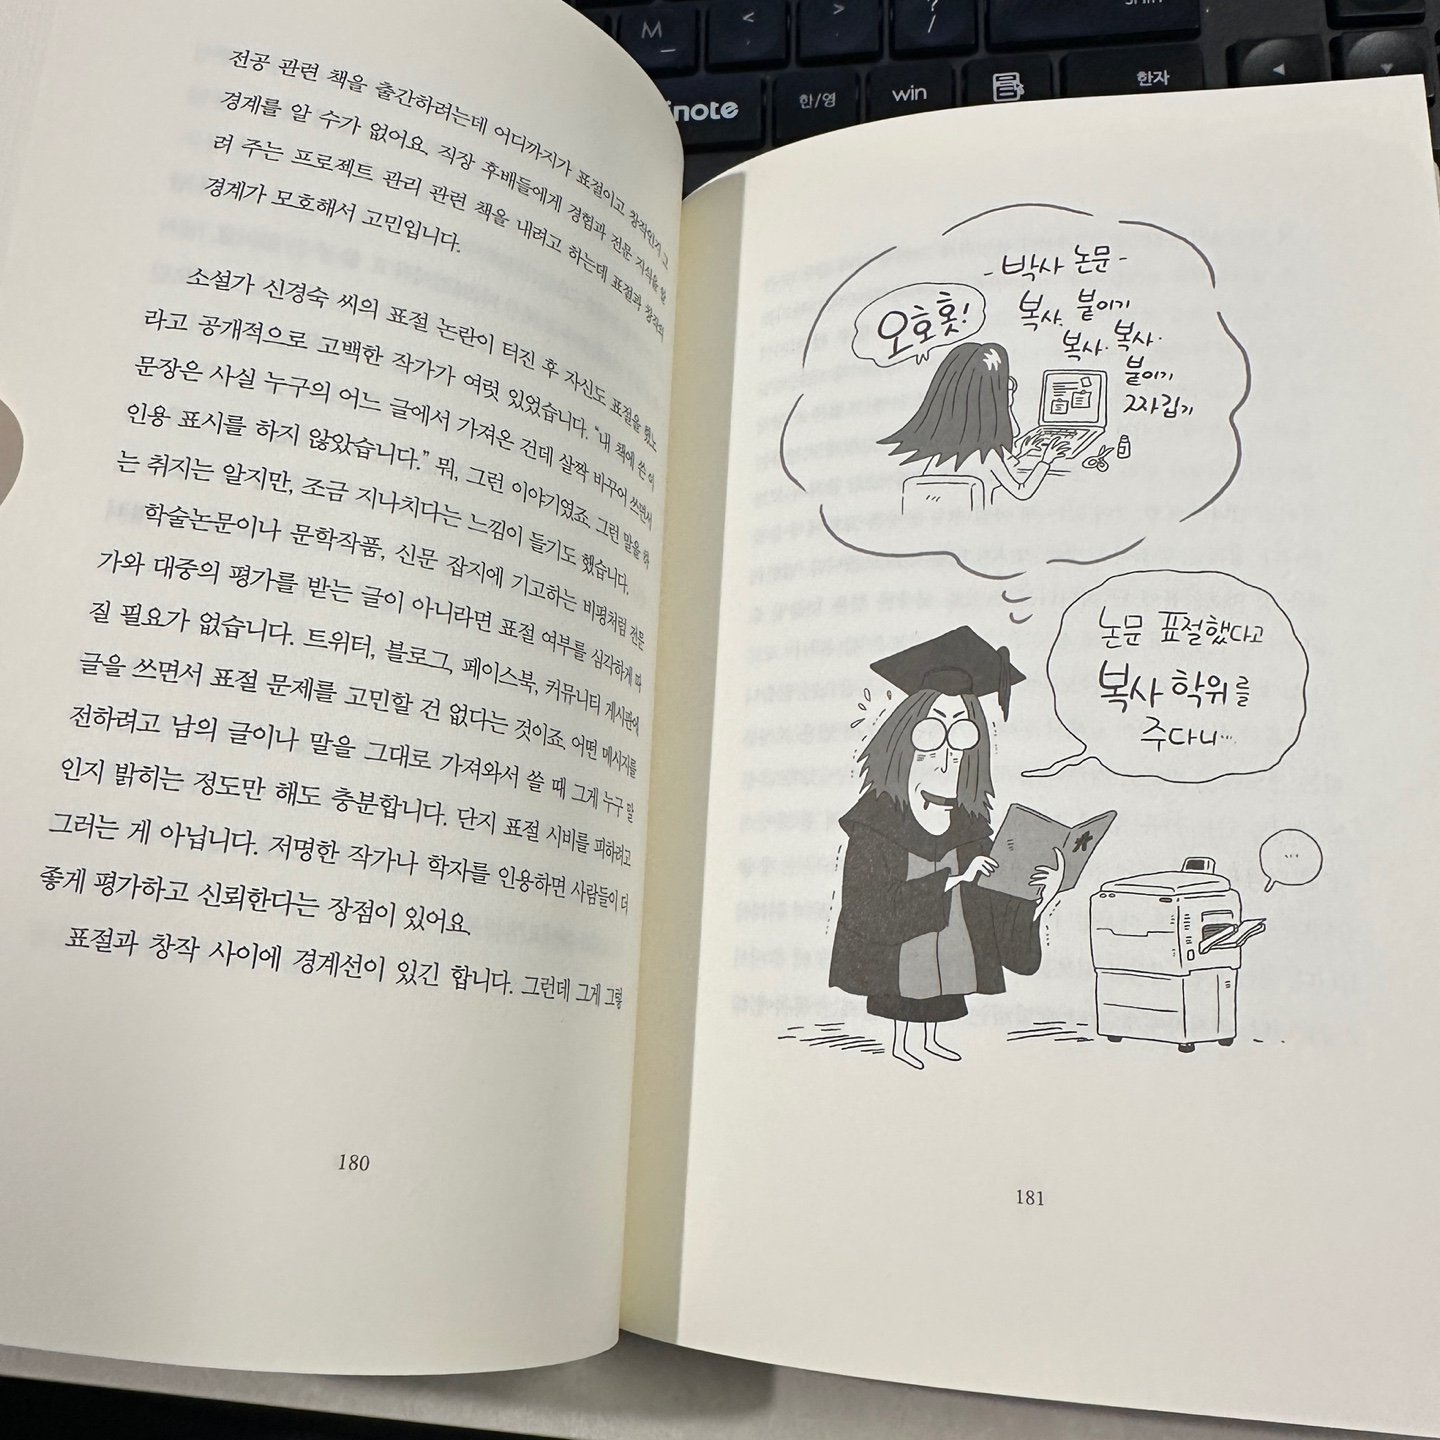 전공 관련 책을 출간하려는데 어디까지가 표절이고 창작인지 그
경계를 알 수가 없어요. 직장 후배들에게 경험과 전문 지식을 알
려 주는 프로젝트 관리 관련 책을 내려고 하는데 표절과 창작의
경계가 모호해서 고민입니다.
소설가 신경숙 씨의 표절 논란이 터진 후 자신도 표절을 했노
라고 공개적으로 고백한 작가가 여럿 있었습니다. “내 책에 쓴 이
문장은 사실 누구의 어느 글에서 가져온 건데 살짝 바꾸어 쓰면서
인용 표시를 하지 않았습니다.” 뭐, 그런 이야기였죠. 그런 말을 하
는 취지는 알지만, 조금 지나치다는 느낌이 들기도 했습니다.
학술논문이나 문학작품, 신문 잡지에 기고하는 비평처럼 전문
가와 대중의 평가를 받는 글이 아니라면 표절 여부를 심각하게 따
질 필요가 없습니다. 트위터, 블로그, 페이스북, 커뮤니티 게시판에
글을 쓰면서 표절 문제를 고민할 건 없다는 것이죠. 어떤 메시지를
전하려고 남의 글이나 말을 그대로 가져와서 쓸 때 그게 누구 말
인지 밝히는 정도만 해도 충분합니다. 단지 표절 시비를 피하려고
그러는 게 아닙니다. 저명한 작가나 학자를 인용하면 사람들이 더
좋게 평가하고 신뢰한다는 장점이 있어요.
표절과 창작 사이에 경계선이 있긴 합니다. 그런데 그게 그렇
180
-박사 논문-
오호홋!
복사. 붙이기
복사. 복사.
붙이기
짜깁기
논문 표절했다고
복사 학위를
주다니...
...
181
M
<
>
?
/
Shift
note
한/영
win
한자
◄
▼